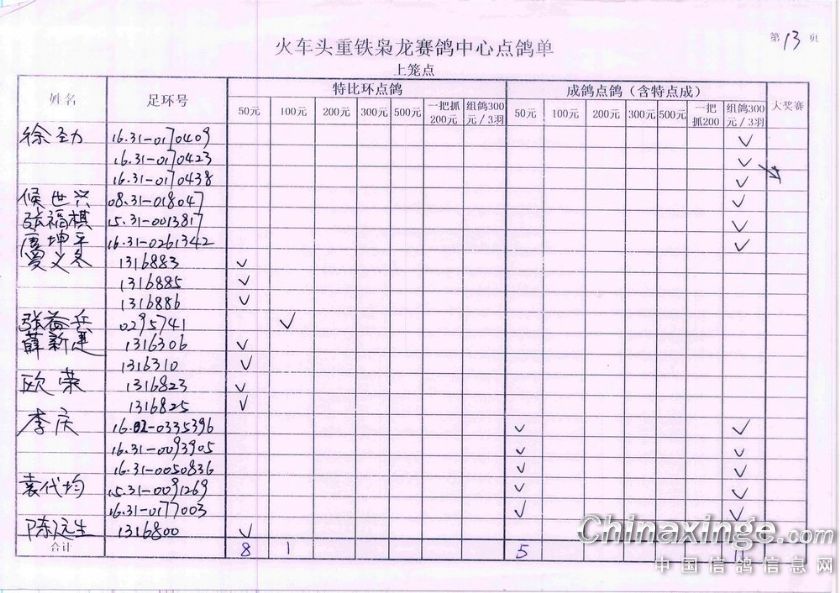 第13页
火车头重铁枭龙赛鸽中心点鸽单
上笼点
姓名 足环号 特比环点鸽 成鸽点鸽（含特点成） 大奖赛
50元 100元 200元 300元 500元 一把抓200元 组鸽300元/3羽 50元 100元 200元 300元 500元 一把抓200 组鸽300元/3羽
徐勁 16.31-0170409 ✓
16.31-0170423 ✓
16.31-0170438 ✓
侯世兴 08.31-018047 ✓
张福棋 15.31-0013817 ✓
廖坤平 16.31-0261342 ✓
1316883 ✓
1316885 ✓
1316886 ✓
张益兵 0295741 ✓
薛新建 1316306 ✓
1316310 ✓
欧荣 1316823 ✓
1316825 ✓
李庆 16.02-0335396 ✓ ✓
16.31-0093905 ✓ ✓
16.31-0050836 ✓ ✓
袁代均 15.31-0091269 ✓ ✓
16.31-0177003 ✓ ✓
陈远生 1316800 ✓
合计 8 1 5
Chinaxinge.com
中国信鸽信息网